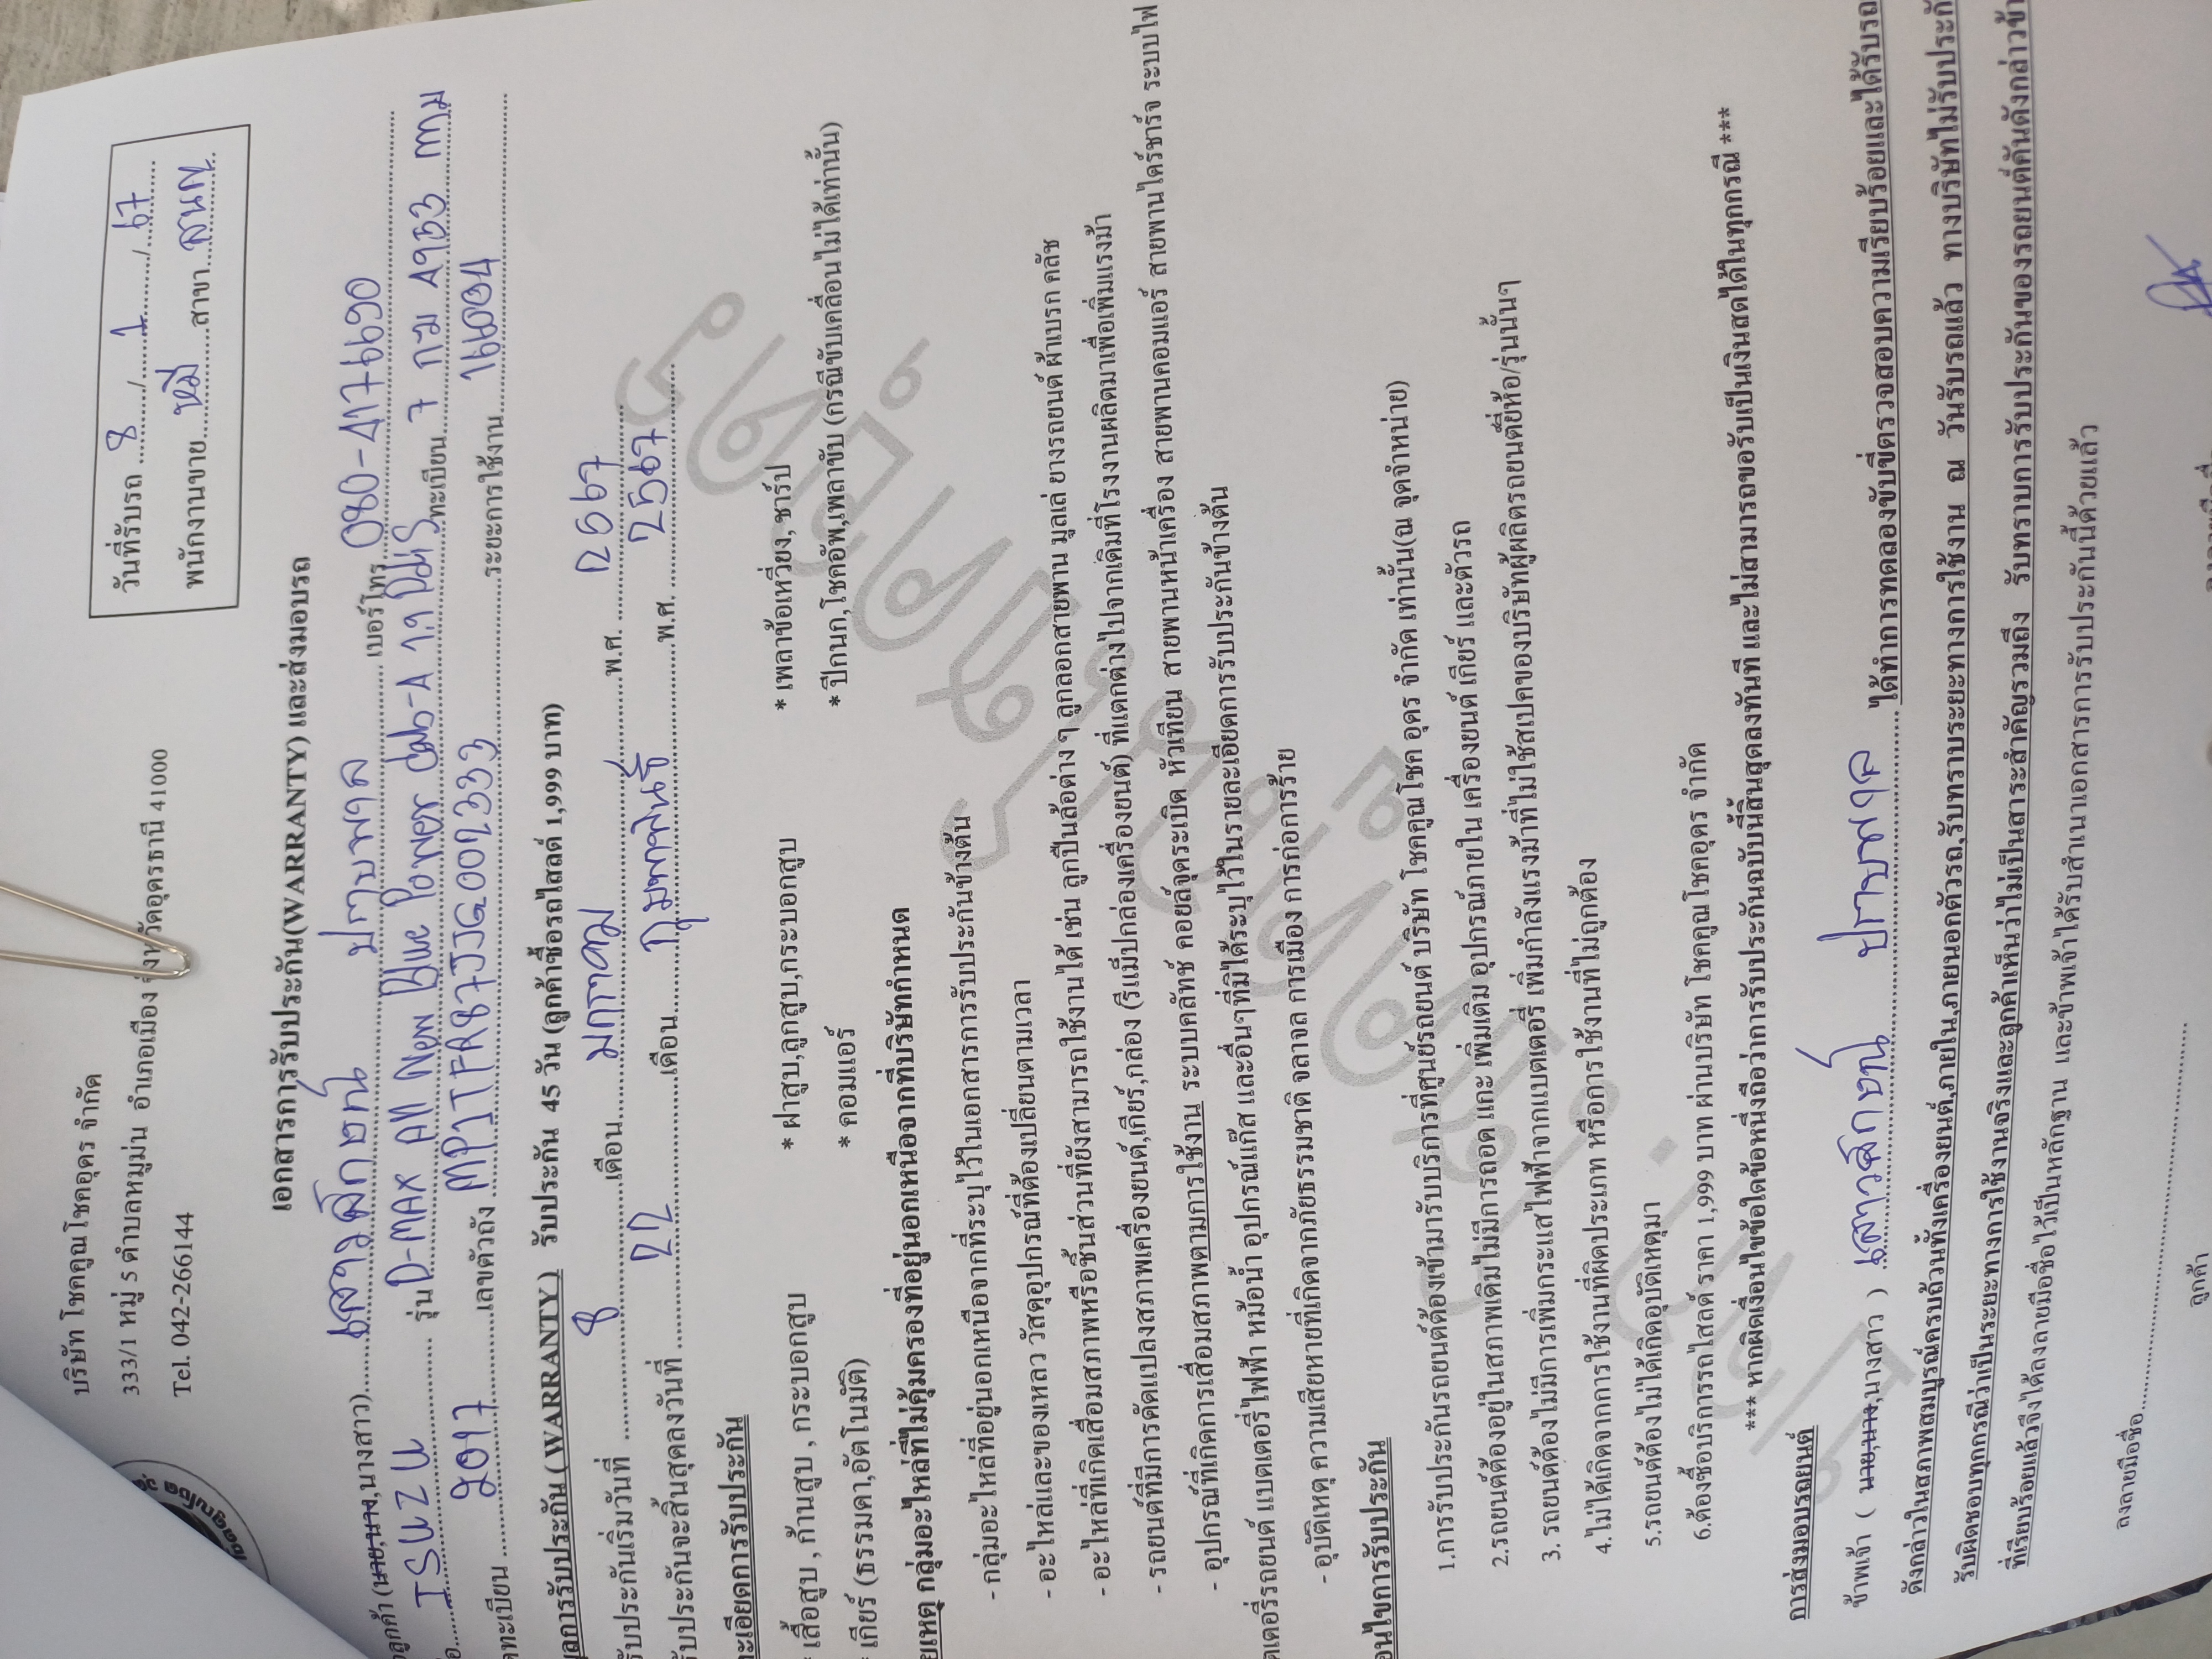 บริษัท โชคคูณโชคอุดร จำกัด
333/1 หมู่ 5 ตำบลหมูม่น อำเภอเมือง จังหวัดอุดรธานี 41000
Tel. 042-266144
วันที่รับรถ 8 / 1 / 67
พนักงานขาย หมี สาขา
เอกสารการรับประกัน(WARRANTY) และส่งมอบรถ
ลูกค้า (นาย,นาง,นางสาว) เสาวลักษณ์ ปาบพาล เบอร์โทร 080-4176690
ISUZU รุ่น D-MAX All New Blue Power Cab-A 1.9 ทะเบียน 7 กฆ 4953 กทม
ทะเบียน 2017 เลขตัวถัง MP1TFR87JJG002333 ระยะการใช้งาน
ผลการรับประกัน (WARRANTY) รับประกัน 45 วัน (ลูกค้าซื้อรถไสลด์ 1,999 บาท)
รับประกันเริ่มวันที่ 8 เดือน มกราคม พ.ศ. 2567
รับประกันจะสิ้นสุดลงวันที่ 22 เดือน กุมภาพันธ์ พ.ศ. 2567
ละเอียดการรับประกัน
* เสื้อสูบ , ก้านสูบ , กระบอกสูบ * ฝาสูบ,ลูกสูบ,กระบอกสูบ * เพลาข้อเหวี่ยง, ชาร์ป
* เกียร์ (ธรรมดา,อัตโนมัติ) * คอมแอร์ * ปีกนก,โชคอัพ,เพลาขับ (กรณีขับเคลื่อนไม่ได้เท่านั้น)
ยเหตุ กลุ่มอะไหล่ที่ไม่คุ้มครองที่อยู่นอกเหนือจากที่บริษัทกำหนด
- กลุ่มอะไหล่ที่อยู่นอกเหนือจากที่ระบุไว้ในเอกสารการรับประกันข้างต้น
- อะไหล่และของเหลว วัสดุอุปกรณ์ที่ต้องเปลี่ยนตามเวลา
- อะไหล่ที่เกิดเสื่อมสภาพหรือชิ้นส่วนที่ยังสามารถใช้งานได้ เช่น ลูกปืนล้อต่าง ๆ ลูกลอกสายพาน มูลเล่ ยางรถยนต์ ผ้าเบรก คลัช
- รถยนต์ที่มีการดัดแปลงสภาพเครื่องยนต์,เกียร์,กล่อง (รีแม็ปกล่องเครื่องยนต์) ที่แตกต่างไปจากเดิมที่โรงงานผลิตมาเพื่อเพิ่มแรงม้า
- อุปกรณ์ที่เกิดการเสื่อมสภาพตามการใช้งาน ระบบคลัทช์ คอยล์จุดระเบิด หัวเทียน สายพานหน้าเครื่อง สายพานคอมแอร์ สายพานไดร์ชาร์จ ระบบไฟ
ตเตอรี่รถยนต์ แบตเตอรี่ไฟฟ้า หม้อน้ำ อุปกรณ์แก๊ส และอื่นๆที่มิได้ระบุไว้ในรายละเอียดการรับประกันข้างต้น
- อุบัติเหตุ ความเสียหายที่เกิดจากภัยธรรมชาติ จลาจล การเมือง การก่อการร้าย
อนไขการรับประกัน
1.การรับประกันรถยนต์ต้องเข้ามารับบริการที่ศูนย์รถยนต์ บริษัท โชคคูณโชค อุดร จำกัด เท่านั้น(ณ จุดจำหน่าย)
2.รถยนต์ต้องอยู่ในสภาพเดิมไม่มีการถอด แกะ เพิ่มเติม อุปกรณ์ภายใน เครื่องยนต์ เกียร์ และตัวรถ
3. รถยนต์ต้องไม่มีการเพิ่มกระแสไฟฟ้าจากแบตเตอรี่ เพิ่มกำลังแรงม้าที่ไม่ใช้สเปคของบริษัทผู้ผลิตรถยนต์ยี่ห้อ/รุ่นนั้นๆ
4.ไม่ได้เกิดจากการใช้งานที่ผิดประเภท หรือการใช้งานที่ไม่ถูกต้อง
5.รถยนต์ต้องไม่ได้เกิดอุบัติเหตุมา
6.ต้องซื้อบริการรถไสลด์ ราคา 1,999 บาท ผ่านบริษัท โชคคูณโชคอุดร จำกัด
*** หากผิดเงื่อนไขข้อใดข้อหนึ่งถือว่าการรับประกันฉบับนี้สิ้นสุดลงทันที และไม่สามารถขอรับเป็นเงินสดได้ในทุกกรณี ***
การส่งมอบรถยนต์
ข้าพเจ้า ( นาย,นาง,นางสาว ) เสาวลักษณ์ ปาบพาล ได้ทำการทดลองขับขี่ตรวจสอบความเรียบร้อยและได้รับรถ
ดังกล่าวในสภาพสมบูรณ์ครบถ้วนทั้งเครื่องยนต์,ภายใน,ภายนอกตัวรถ,รับทราบระยะทางการใช้งาน ณ วันรับรถแล้ว ทางบริษัทไม่รับประกั
รับผิดชอบทุกกรณีว่าเป็นระยะทางการใช้งานจริงและลูกค้าเห็นว่าไม่เป็นสาระสำคัญรวมถึง รับทราบการรับประกันของรถยนต์คันดังกล่าวข้า
ที่เรียบร้อยแล้วจึงได้ลงลายมือชื่อไว้เป็นหลักฐาน และข้าพเจ้าได้รับสำเนาเอกสารการรับประกันนี้ด้วยแล้ว
ลงลายมือชื่อ
ลูกค้า